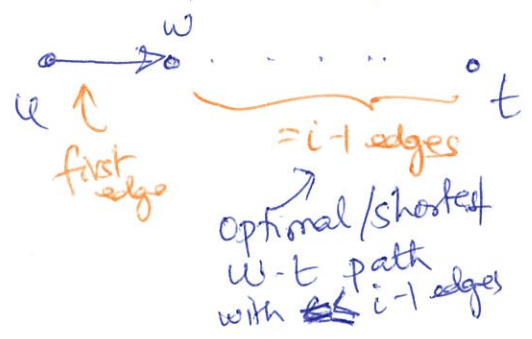 w
u
t
first
edge
= i-1 edges
optimal/shortest
w-t path
with i-1 edges